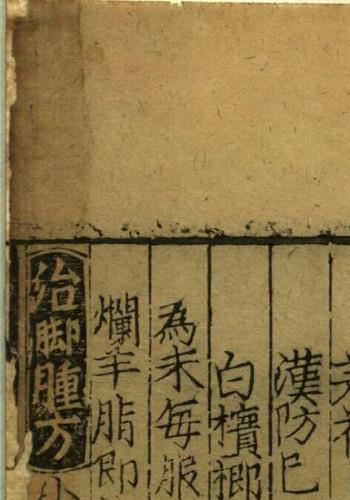 漢防巳
白檳榔
為末毎服
爛羊脂即
治脚腫方